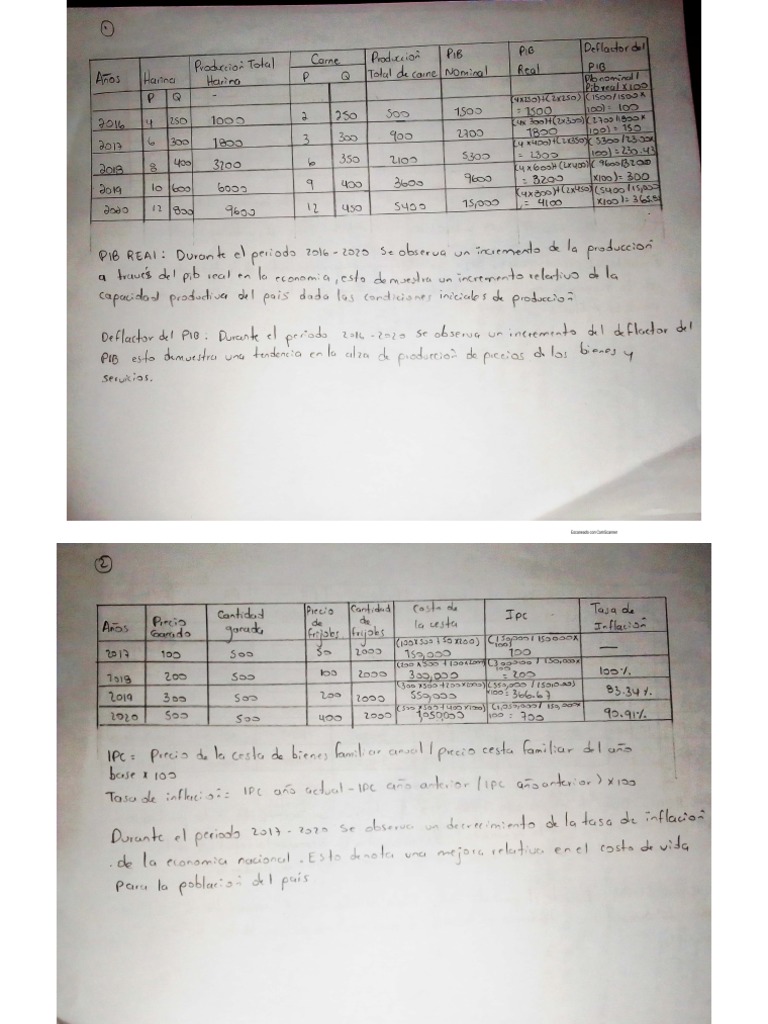 1
Años | Harina | Produccion Total Harina | Carne | Produccion Total de carne | PIB Nominal | PIB Real | Deflactor del PIB
P | Q | - | P | Q | Pib nominal / Pib real x 100
2016 | 4 | 250 | 1000 | 2 | 250 | 500 | 1500 | (4x250)+(2x250) = 1500 | (1500/1500x 100) = 100
2017 | 6 | 300 | 1800 | 3 | 300 | 900 | 2700 | (4x300)+(2x300) 1800 | (2700/1800x 100) = 150
2018 | 8 | 400 | 3200 | 6 | 350 | 2100 | 5300 | (4x400)+(2x350) = 2300 | (5300/2300x 100) = 230.43
2019 | 10 | 600 | 6000 | 9 | 400 | 3600 | 9600 | (4x600)+(2x400) = 3200 | (9600/3200 x100) = 300
2020 | 12 | 800 | 9600 | 12 | 450 | 5400 | 15,000 | (4x800)+(2x450) = 4100
PIB REAl : Durante el periodo 2016-2020 se observa un incremento de la produccion
a través del pib real en la economia, esto demuestra un incremento relativo de la
capacidad productiva del pais dada las condiciones iniciales de produccion
Deflactor del PIB : Durante el periodo 2016-2020 se observa un incremento del deflactor del
PIB esto demuestra una tendencia en la alza de produccion de precios de los bienes y
servicios.
Escaneado con CamScanner
2
Años | Precio Ganado | Cantidad ganado | Precio de frijoles | Cantidad de frijoles | Costo de la cesta | Ipc | Tasa de Inflacion
2017 | 100 | 500 | 50 | 2000 | 150,000 | (150,000/150000x 100) 100 | —
2018 | 200 | 500 | 100 | 2000 | 300,000 | = 200 | 100%
2019 | 300 | 500 | 200 | 2000 | 550,000 | x100 = 366.67 | 83.34%
2020 | 500 | 500 | 400 | 2000 | 1,050,000 | (1,050,000/150,000x 100 = 700 | 90.91%
IPC = Precio de la cesta de bienes familiar anual / precio cesta familiar del año
base x 100
Tasa de inflacion = IPC año actual - IPC año anterior / IPC año anterior) x 100
Durante el periodo 2017-2020 se observa un decrecimiento de la tasa de inflacion
de la economia nacional. Esto denota una mejora relativa en el costo de vida
para la poblacion del pais